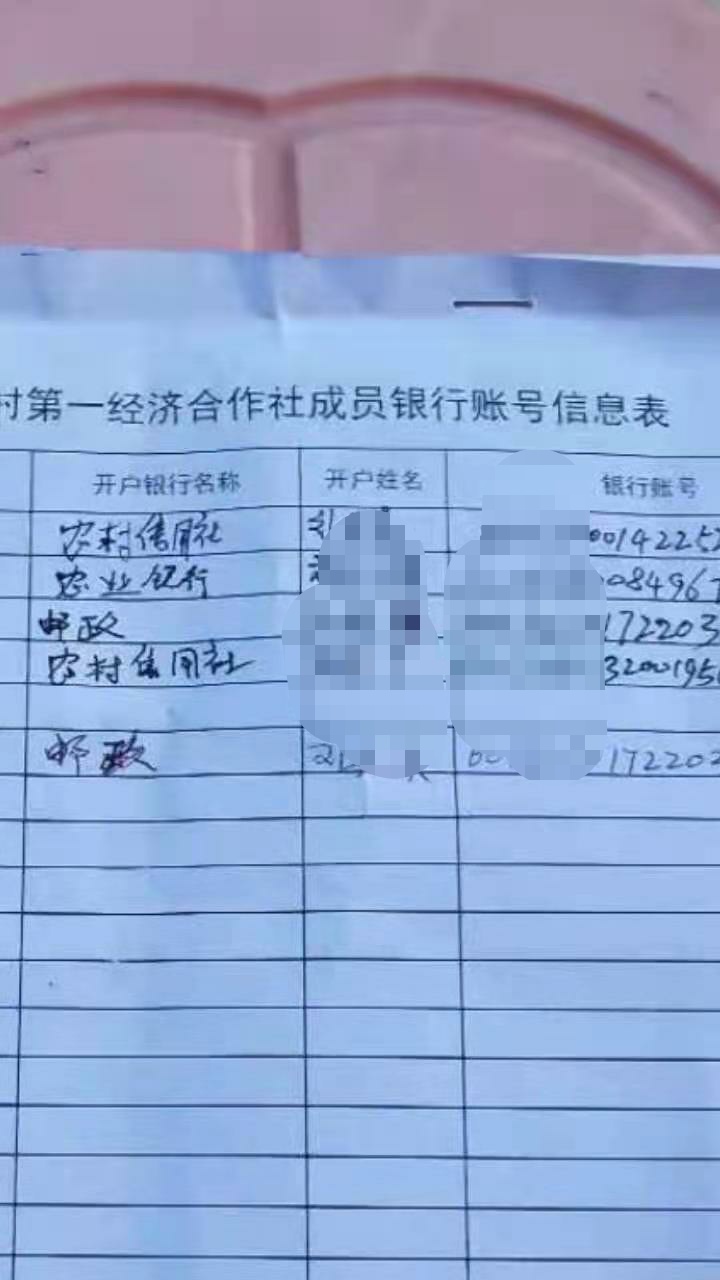 村第一经济合作社成员银行账号信息表
开户银行名称 开户姓名 银行账号
农村信用社 0014225
农业银行 08496
邮政 172203
农村信用社 3200195
邮政 17220